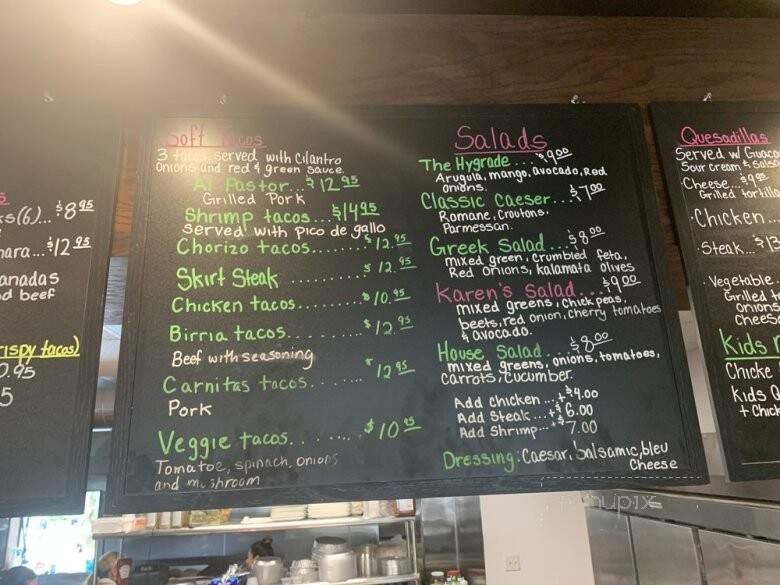 s(6)... $8 95
nara...$12 95
anadas
d beef
rispy tacos)
0.95
5
Soft tacos
3 tacos served with cilantro
onions and red & green sauce.
Al Pastor...$12 95
Grilled Pork
Shrimp tacos...$14 95
served with pico de gallo
Chorizo tacos........$12.95
Skirt Steak $12.95
Chicken tacos........$10.95
Birria tacos............$12.95
Beef with seasoning
Carnitas tacos....... $12 95
Pork
Veggie tacos. . ....... $10 95
Tomatoe, spinach, onions
and mushroom
Salads
The Hygrade...$9.00
Arugula, mango, avocado, Red
onions.
Classic Caeser...$7.00
Romane, croutons,
Parmessan.
Greek Salad...$8.00
mixed green, crumbled feta,
Red onions, kalamata olives
Karen's Salad...$9.00
mixed greens, chick peas,
beets, red onion, cherry tomatoes
& avocado.
House Salad...$8.00
mixed greens, onions, tomatoes,
carrots, cucumber.
Add chicken...+$4.00
Add Steak...+$6.00
Add Shrimp...+$7.00
Dressing: Caesar, balsamic, bleu
Cheese
Quesadillas
Served w/ Guaca
Sour cream & Salsa
Cheese...$9.95
Grilled tortill
Chicken...
Steak...$13
Vegetable
Grilled
onions
Chees
Kids
Chicke
Kids Q
+ Chick